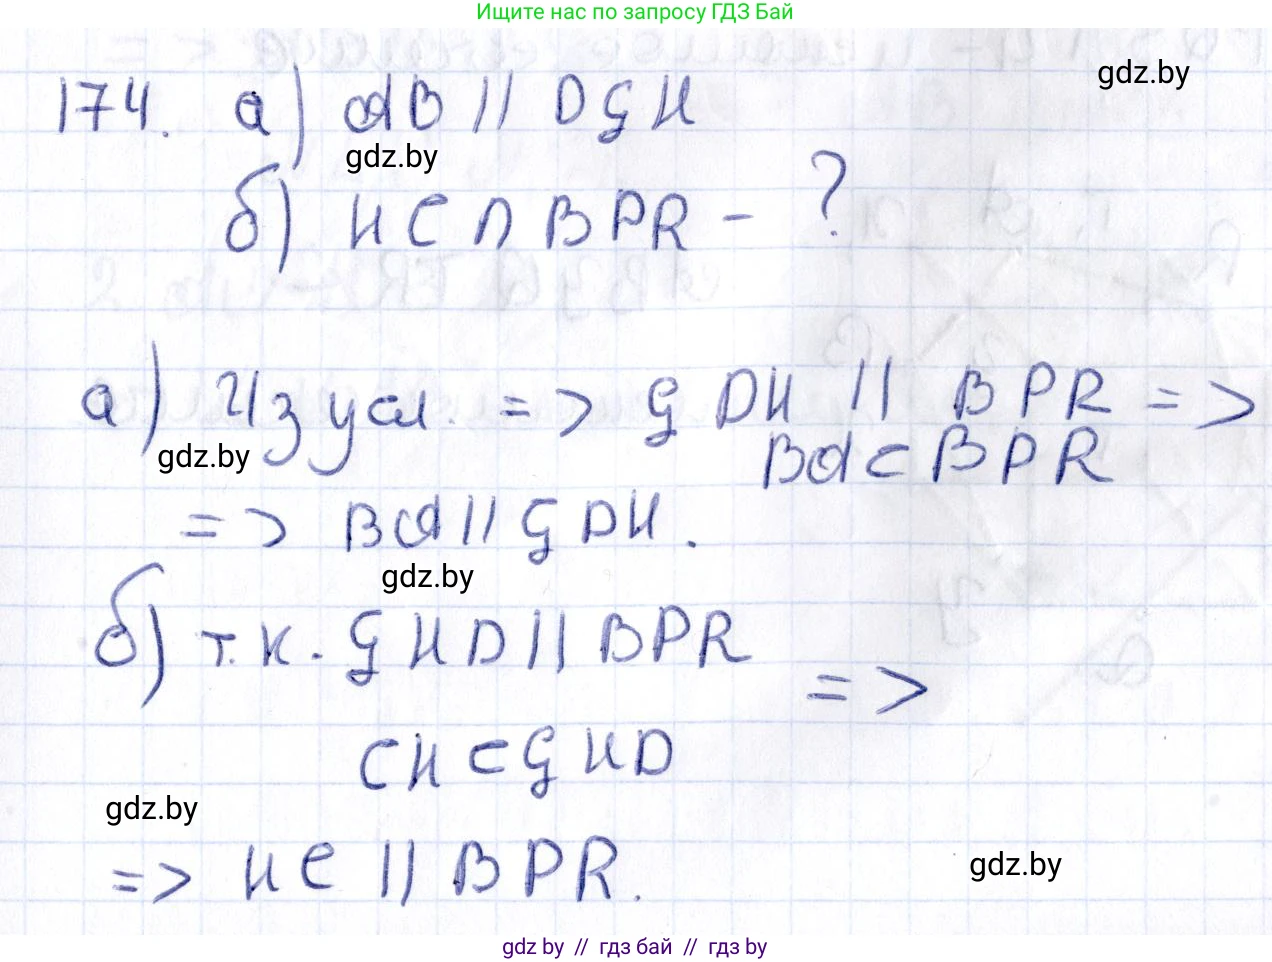 Ищите нас по запросу ГДЗ Бай
gdz.by
174. а) АВ || DGH
gdz.by
б) HC ∩ BPR - ?
а) Из усл. => GDH || BPR =>
BA ⊂ BPR
gdz.by
=> BA || GDH.
gdz.by
б) т.к. GHD || BPR
=>
CH ⊂ GHD
gdz.by
=> HC || BPR.
gdz.by
gdz by // гдз бай // гдз by